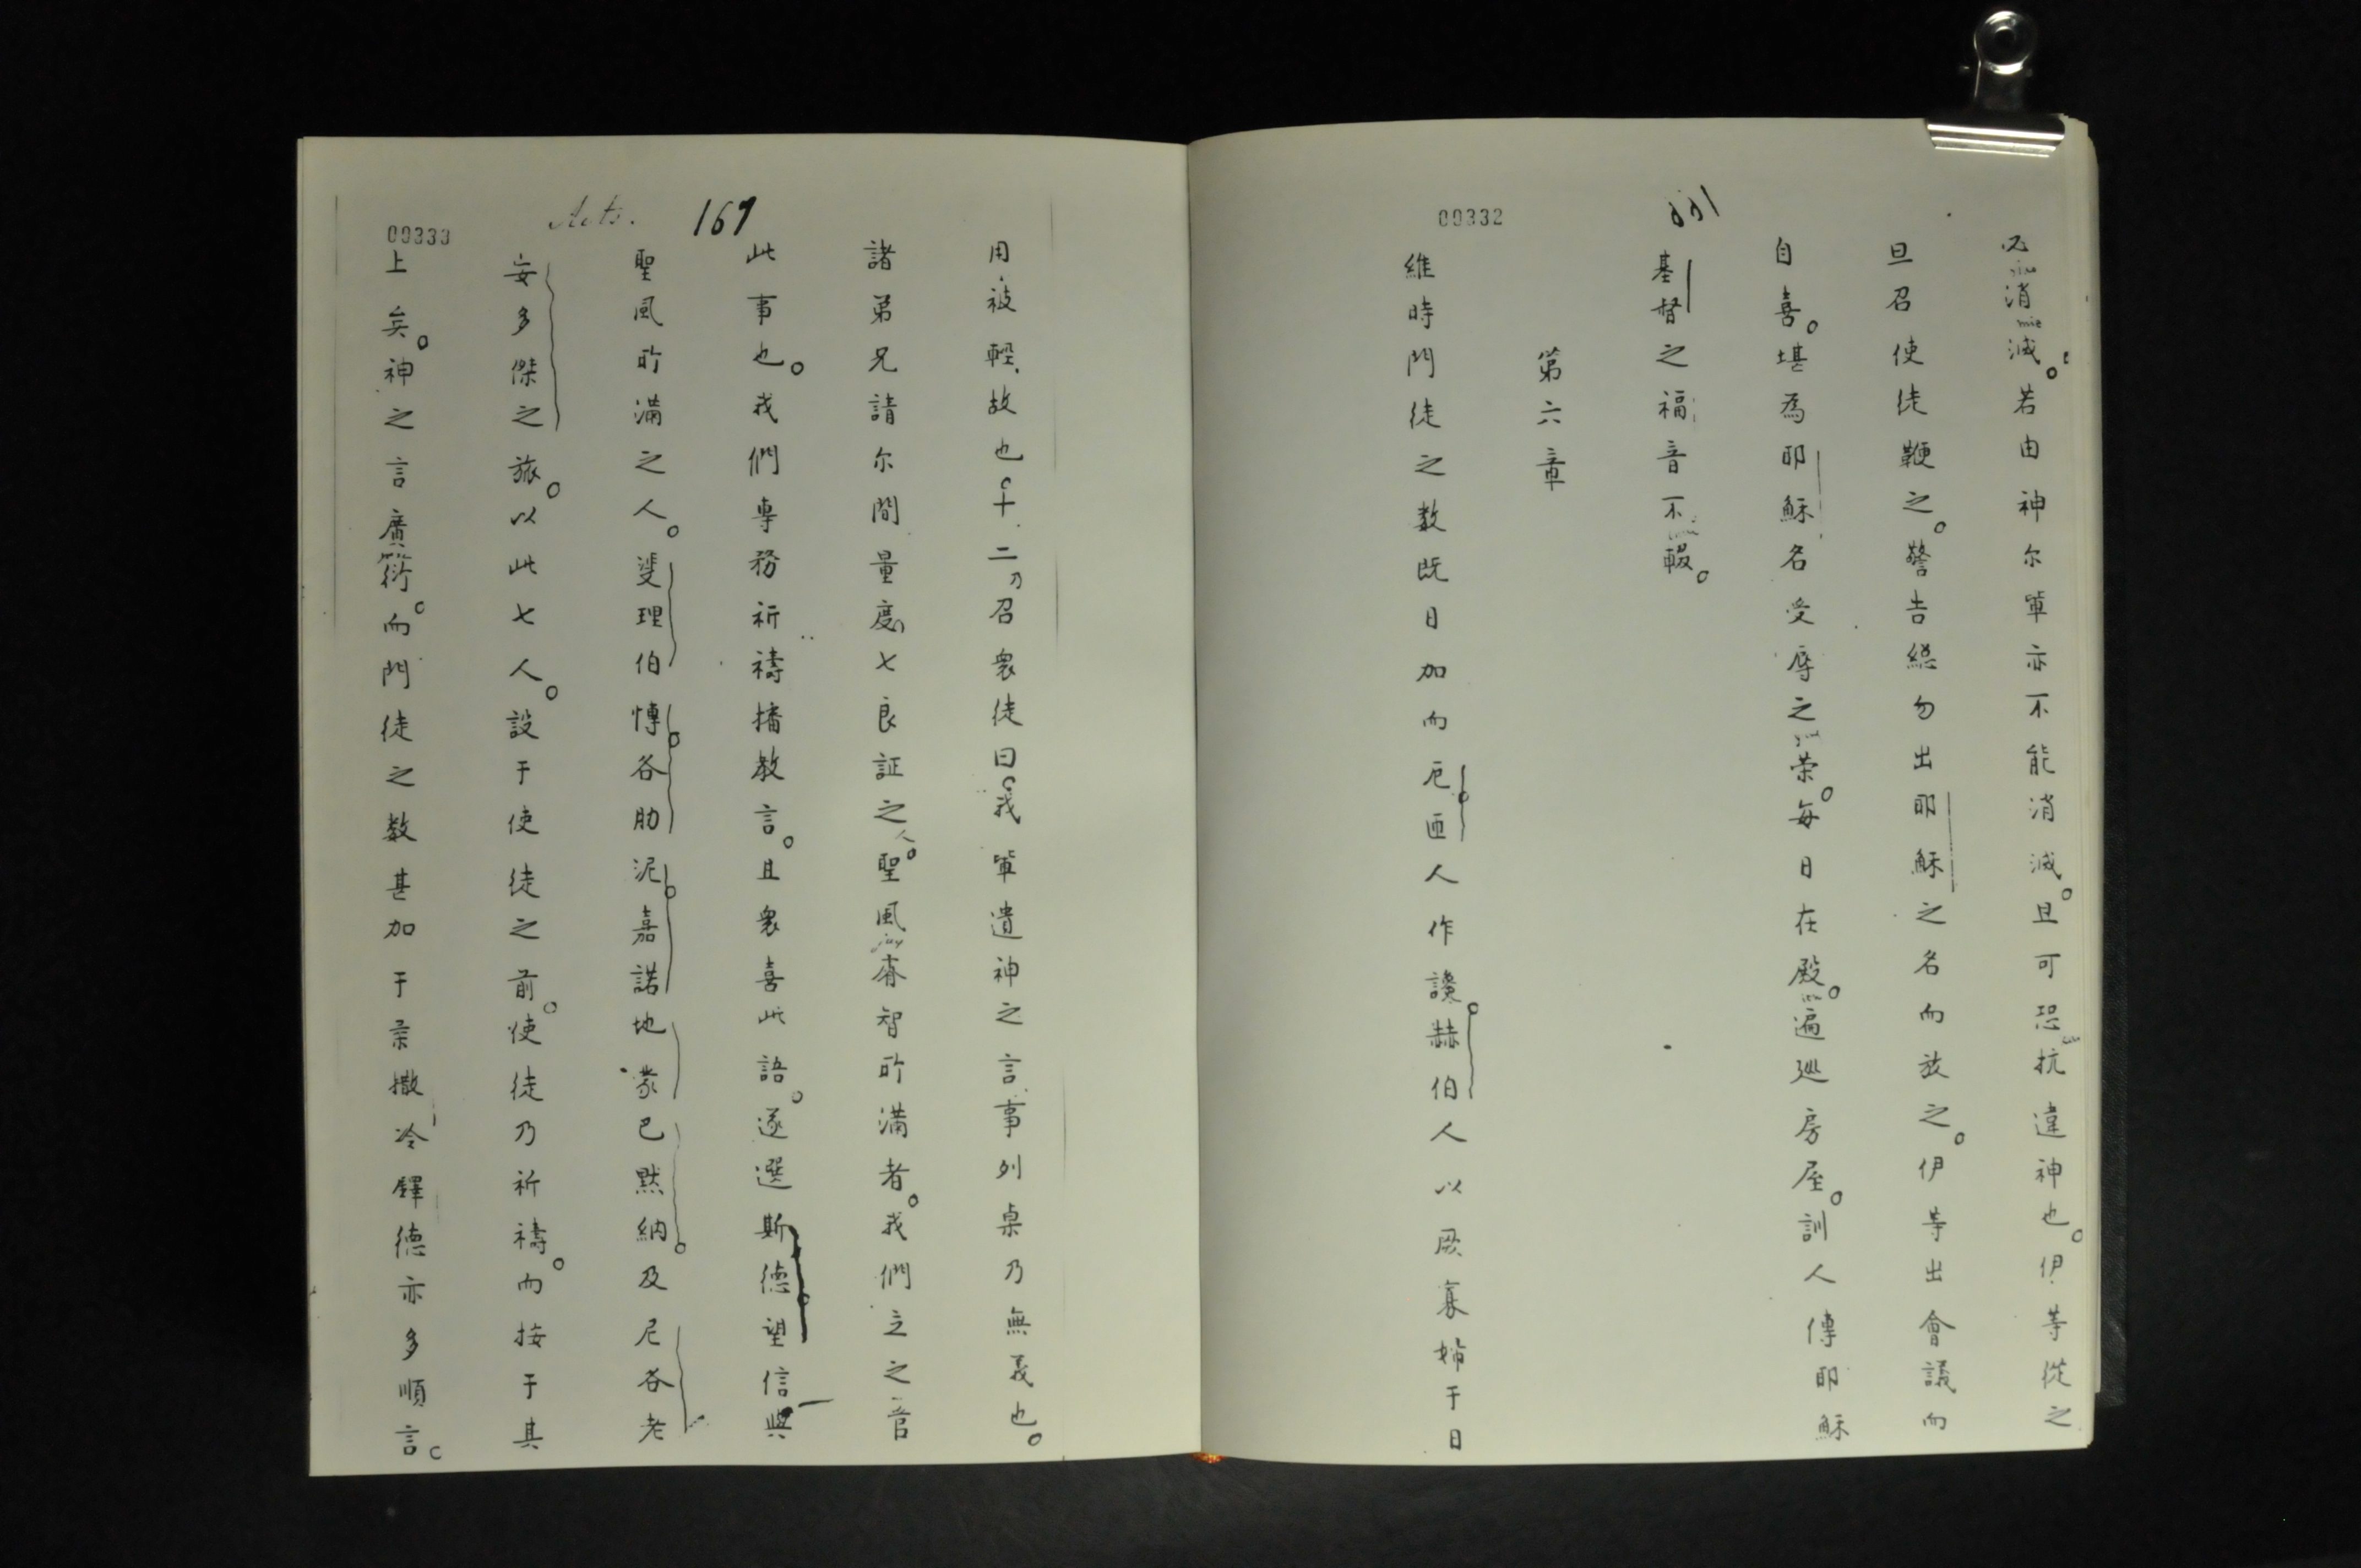 00332
必消滅。若由神尔軰亦不能消滅。且可恐抗違神也。伊等從之
旦召使徒鞭之。警告緦勿出耶穌之名而放之。伊等出會議而
自喜。堪為耶穌名受辱之榮。每日在殿。遍廵房屋。訓人傳耶穌
基督之福音不輟。
第六章
維時門徒之数既日加而厄匝人作讒。赫伯人以厥寡婦于日
00333
Acts. 167
用被輕故也。十二乃召衆徒曰。我軰遺神之言事列桌乃無義也。
諸弟兄請尔間量度七良証之人。聖風睿智所滿者。我們立之管
此事也。我們專務祈禱播教言。且衆喜此語。遂選斯德望信與
聖風所滿之人。斐理伯慱各肋泥嘉諾地蒙巴黙納。及尼各老
安多傑之旅。以此七人。設于使徒之前。使徒乃祈禱。而按于其
上矣。神之言廣衍。而門徒之数甚加于柔撒冷鐸德亦多順言。